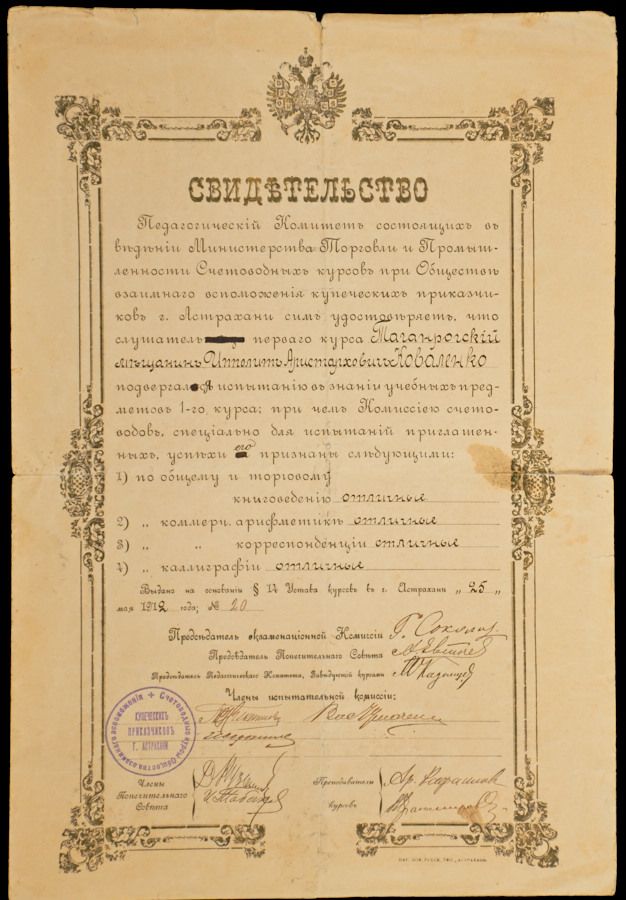 СВИДѢТЕЛЬСТВО
Педагогическій Комитетъ состоящихъ въ
вѣдѣніи Министерства Торговли и Промыш-
ленности Счетоводныхъ курсовъ при Обществѣ
взаимнаго вспоможенія купеческихъ приказчи-
ковъ г. Астрахани симъ удостовѣряетъ, что
слушатель перваго курса Таганрогскій
мѣщанинъ Ипполитъ Аристарховичъ Коваленко
подвергался испытанію въ знаніи учебныхъ пред-
метовъ 1-го курса; при чемъ Комиссіею счето-
водовъ, спеціально для испытаній приглашен-
ныхъ, успѣхи его признаны слѣдующими:
1) по общему и торговому
книговеденію отличные
2) „ коммерч. арифметикѣ отличные
3) „ „ корреспонденціи отличные
4) „ каллиграфіи отличные
Выдано на основаніи § 14 Устава курсовъ въ г. Астрахани „25„
мая 1912 года; № 20
Предсѣдатель экзаменаціонной Комиссіи Г. Соколов
Предсѣдатель Попечительнаго Совѣта
Предсѣдатель Педагогическаго Комитета, Завѣдующій курсами
Члены испытательной комиссіи:
Счетоводные курсы Общества взаимнаго вспоможенія
КУПЕЧЕСКИХЪ
ПРИКАЗЧИКОВЪ
Г. АСТРАХАНИ
Члены
Попечительнаго
Совѣта
Преподаватели
курсовъ